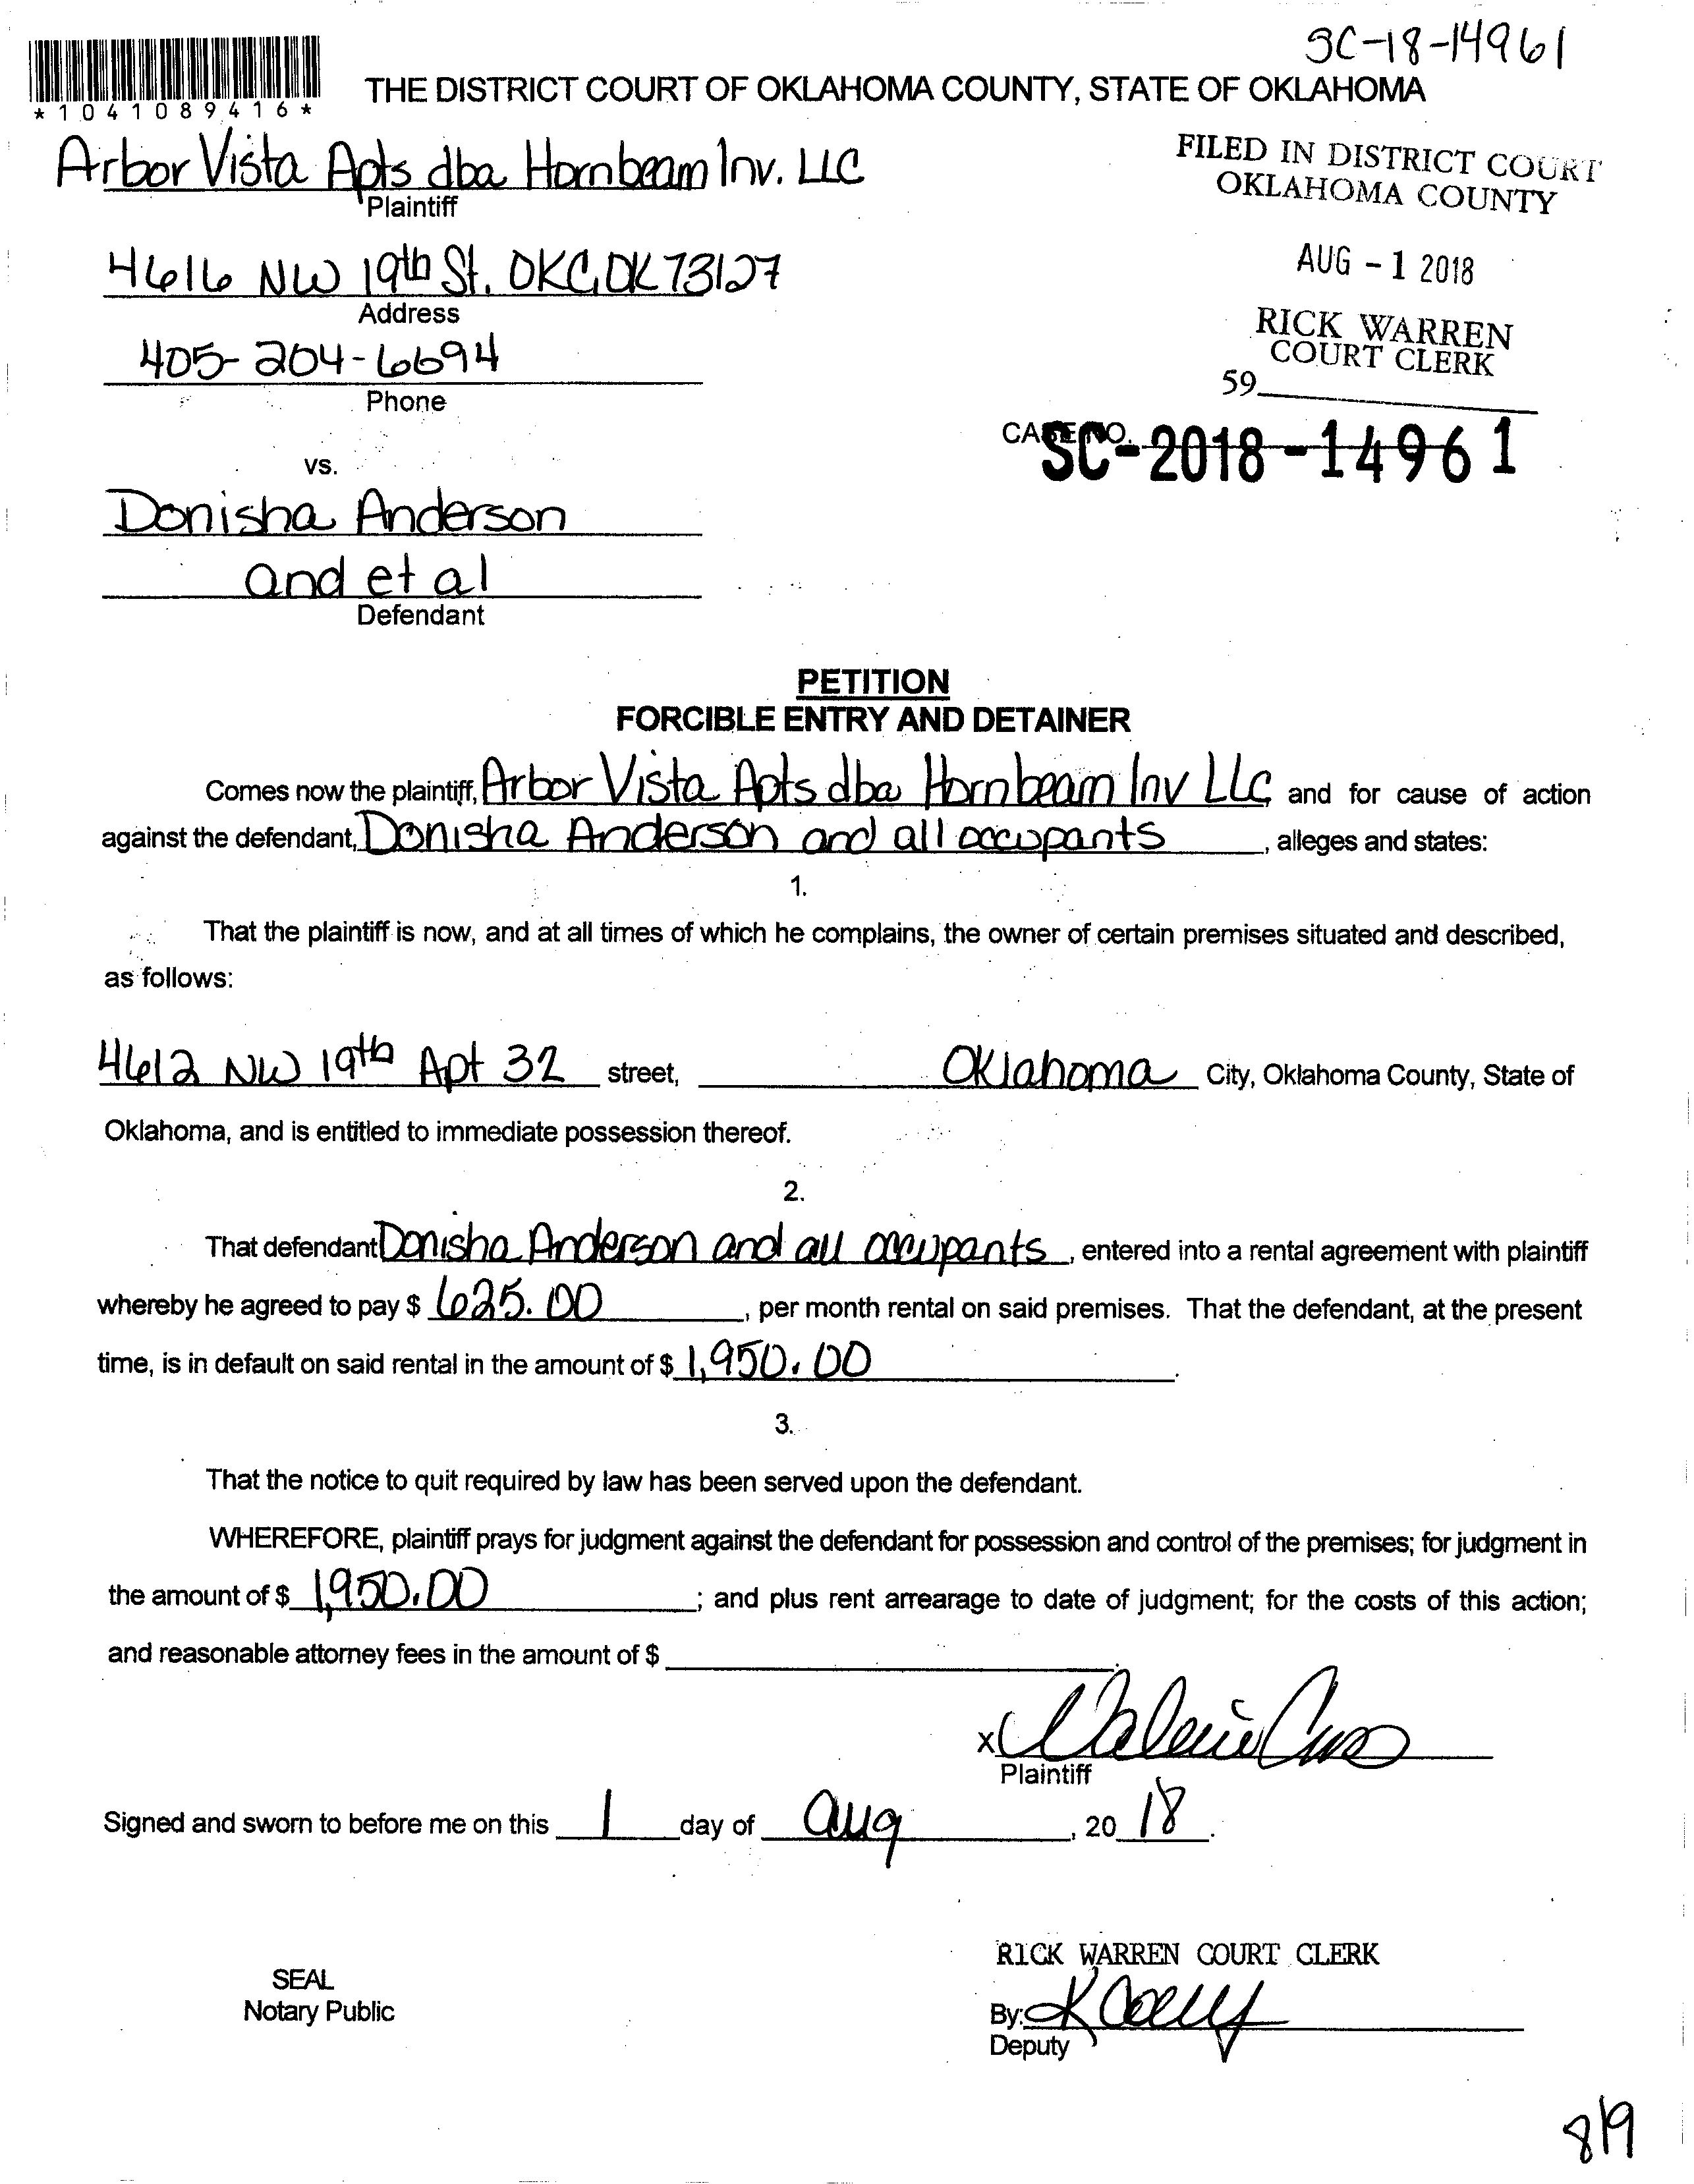 SC-18-14961
*1041089416*
THE DISTRICT COURT OF OKLAHOMA COUNTY, STATE OF OKLAHOMA
Arbor Vista Apts dba Hornbeam Inv. LLC
Plaintiff
FILED IN DISTRICT COURT
OKLAHOMA COUNTY
4616 NW 19th St. OKC, OK 73127
Address
AUG - 1 2018
405-204-6694
Phone
RICK WARREN
COURT CLERK
59
CASE NO.
SC-2018-14961
vs.
Donisha Anderson
and et al
Defendant
PETITION
FORCIBLE ENTRY AND DETAINER
Comes now the plaintiff, Arbor Vista Apts dba Hornbeam Inv LLC, and for cause of action
against the defendant, Donisha Anderson and all occupants, alleges and states:
1.
That the plaintiff is now, and at all times of which he complains, the owner of certain premises situated and described,
as follows:
4612 NW 19th Apt 32 street, Oklahoma City, Oklahoma County, State of
Oklahoma, and is entitled to immediate possession thereof.
2.
That defendant Donisha Anderson and all occupants, entered into a rental agreement with plaintiff
whereby he agreed to pay $ 625.00, per month rental on said premises. That the defendant, at the present
time, is in default on said rental in the amount of $ 1,950.00.
3.
That the notice to quit required by law has been served upon the defendant.
WHEREFORE, plaintiff prays for judgment against the defendant for possession and control of the premises; for judgment in
the amount of $ 1,950.00; and plus rent arrearage to date of judgment; for the costs of this action;
and reasonable attorney fees in the amount of $
X Valerie
Plaintiff
Signed and sworn to before me on this 1 day of Aug, 20 18.
RICK WARREN COURT CLERK
SEAL
Notary Public
By: K
Deputy
8/9